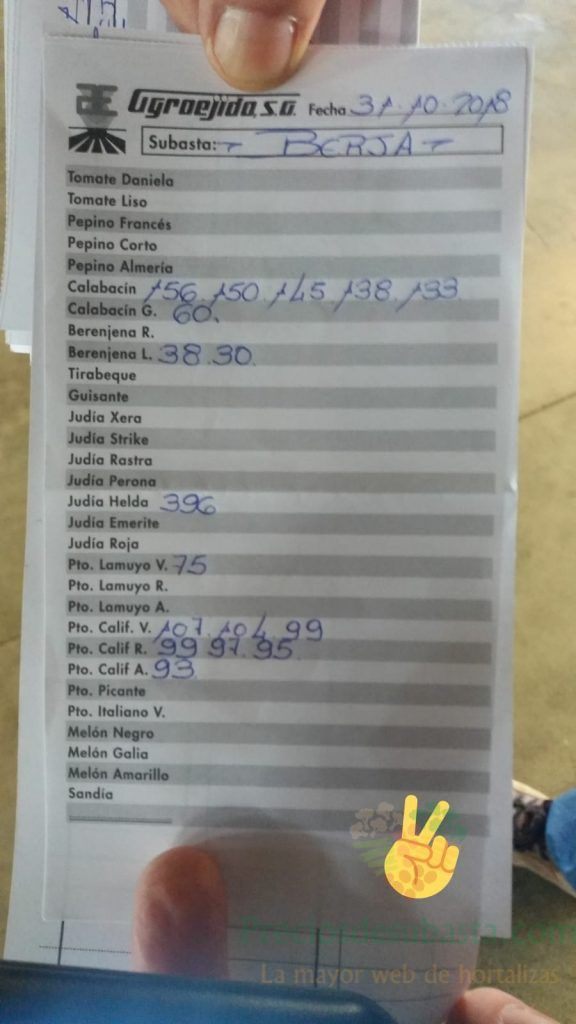 Agroejido, S.A. Fecha 31·10·2018
Subasta: - BERJA -
Tomate Daniela
Tomate Liso
Pepino Francés
Pepino Corto
Pepino Almería
Calabacín 156. 150. 145. 138. 133
Calabacín G. 60.
Berenjena R.
Berenjena L. 38.30.
Tirabeque
Guisante
Judía Xera
Judía Strike
Judía Rastra
Judía Perona
Judía Helda 396
Judía Emerite
Judía Roja
Pto. Lamuyo V. 75
Pto. Lamuyo R.
Pto. Lamuyo A.
Pto. Calif. V. 107. 104. 99
Pto. Calif R. 99 97. 95.
Pto. Calif A. 93
Pto. Picante
Pto. Italiano V.
Melón Negro
Melón Galia
Melón Amarillo
Sandía
Preciosdesubasta.com
La mayor web de hortalizas